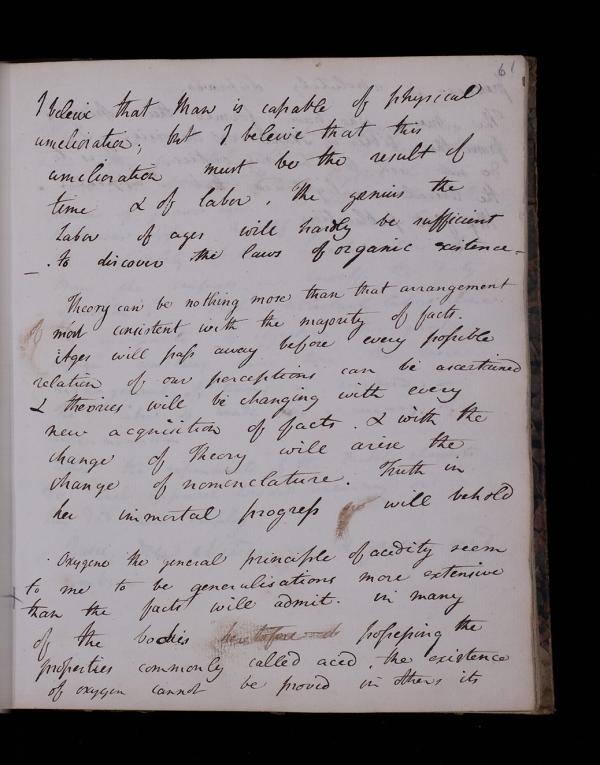 61
I beleive that Man is capable of physical
amelioration; but I beleive that this
amelioration must be the result of
time & of labor. The genius the
Labor of ages will hardly be sufficient
– . to discover the laws of organic existence –
Theory can be nothing more than that arrangement
most consistent with the majority of facts.
Ages will pass away before every possible
relation of our perceptions can be ascertained
& theories will be changing with every
new acquisition of facts . & with the
change of Theory will arise the
change of nomenclature. Truth in
her immortal progress will behold
Oxygene the general principle of acedity seem
to me to be generalisations more extensive
than the facts will admit. in many
of the bodies heretofore possessing the
properties commonly called aced, the existence
of oxygen cannot be proved in others its